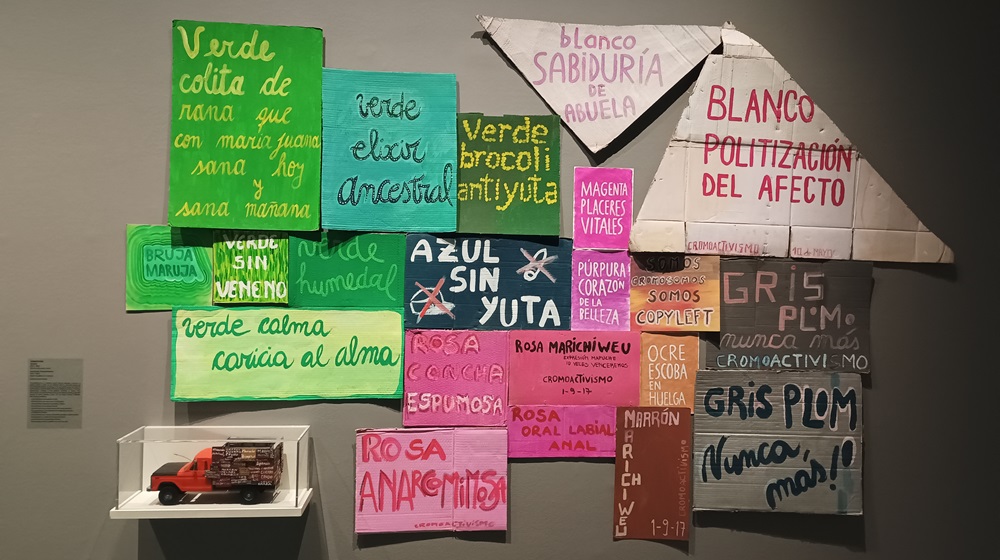 Verde
colita de
rana que
con maría juana
sana hoy
y
sana mañana
verde
elixir
ancestral
Verde
brocoli
antiyuta
blanco
SABIDURÍA
DE
ABUELA
BLANCO
POLITIZACIÓN
DEL AFECTO
CROMOACTIVISMO
MAGENTA
PLACERES
VITALES
BRUJA
MARUJA
VERDE
SIN
VENENO
verde
humedal
AZUL
SIN
YUTA
PÚRPURA
CORAZÓN
DE LA
BELLEZA
SOMOS
CROMOSOMOS
SOMOS
COPYLEFT
GRIS
PLOMO
nunca más
CROMOACTIVISMO
verde calma
caricia al alma
ROSA
CONCHA
ESPUMOSA
ROSA MARICHIWEU
EXPRESIÓN MAPUCHE
10 VECES VENCEREMOS
CROMOACTIVISMO
1-9-17
OCRE
ESCOBA
EN
HUELGA
GRIS PLOM
Nunca,
más!!
ROSA
ORAL LABIAL
ANAL
MARRÓN
MARICHIWEU
CROMOACTIVISMO
1-9-17
ROSA
ANARCOMIMOSA
CROMOACTIVISMO